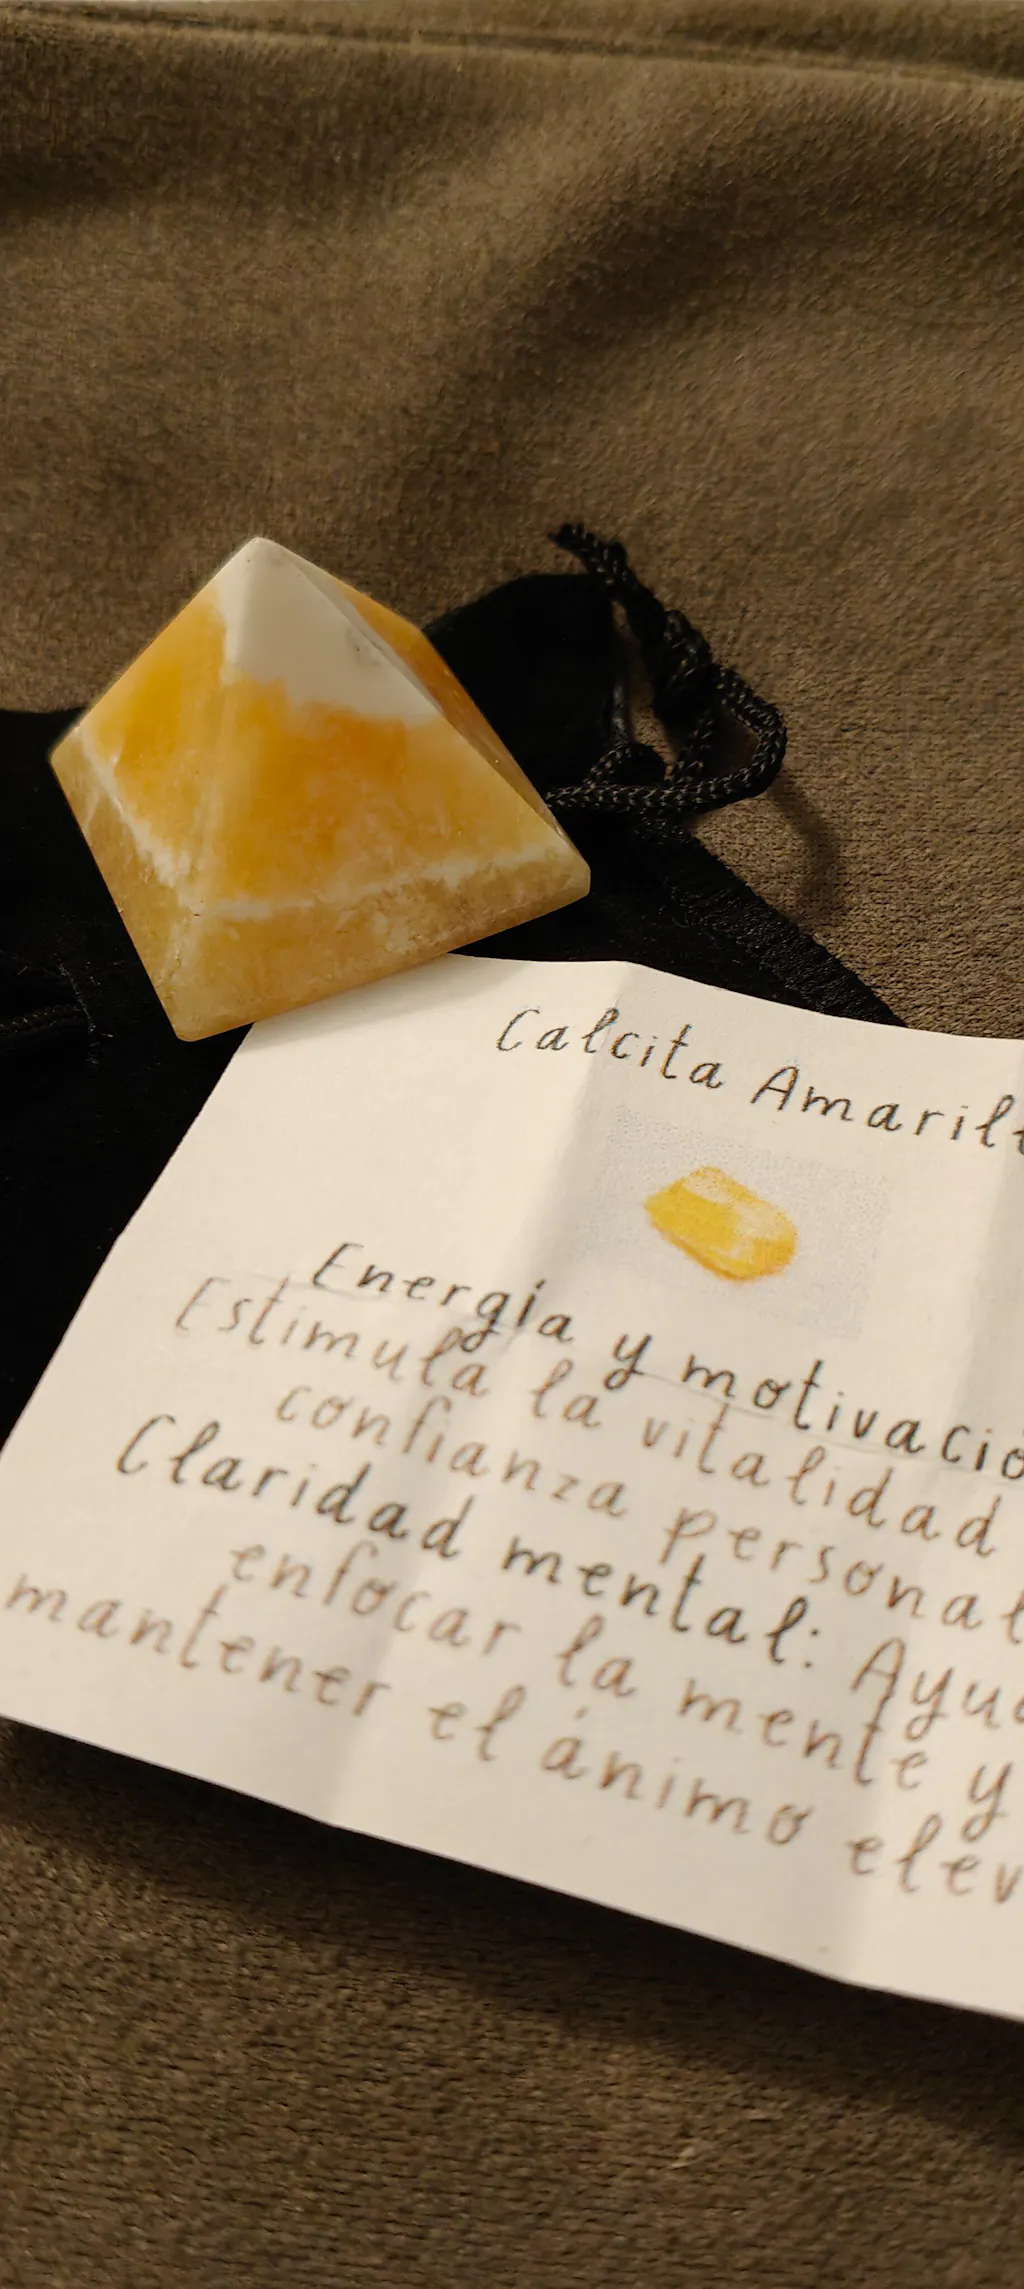 Calcita Amaril
Energía y motivació
Estimula la vitalidad
confianza personal
Claridad mental: Ayud
enfocar la mente y
mantener el ánimo elev